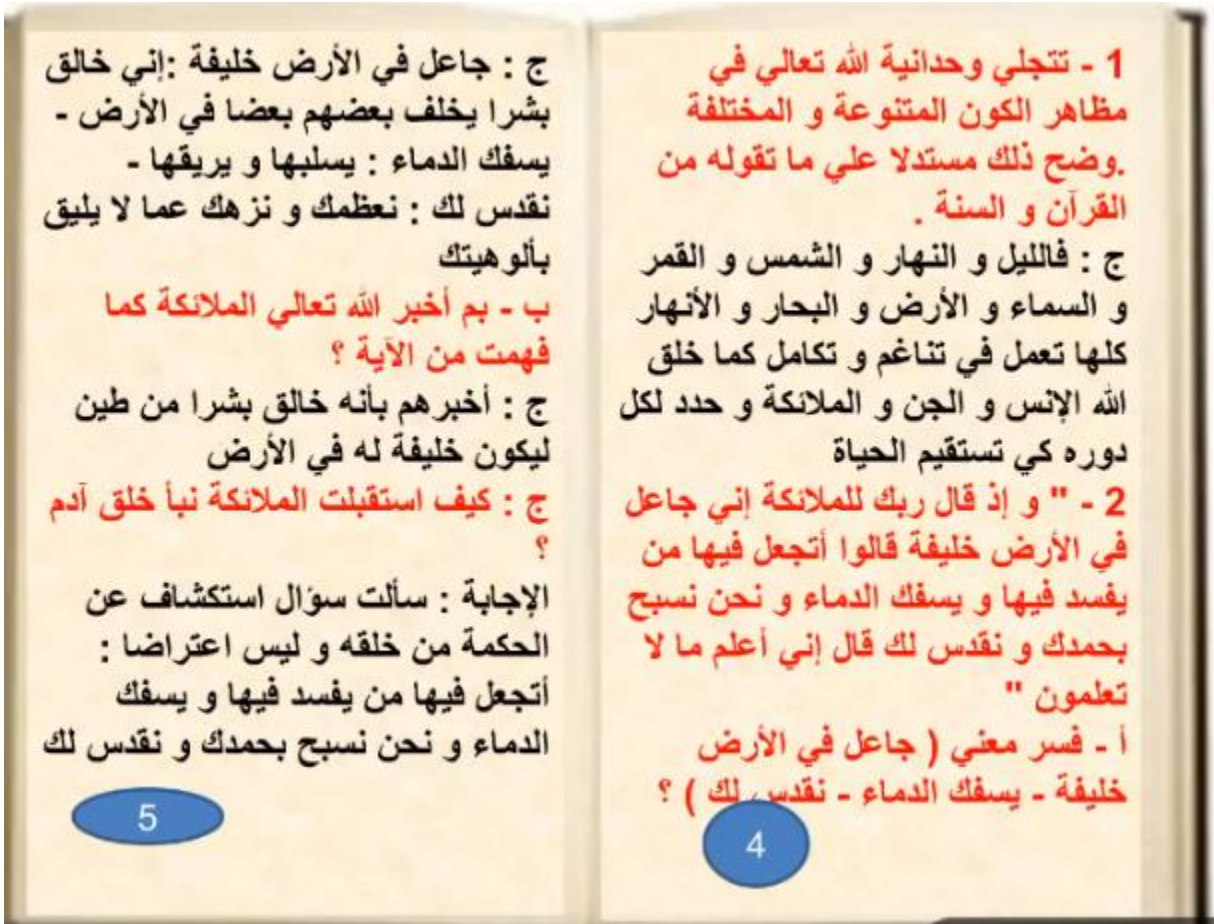 1 - تتجلي وحدانية الله تعالي في
مظاهر الكون المتنوعة و المختلفة
.وضح ذلك مستدلا علي ما تقوله من
القرآن و السنة .
ج : فالليل و النهار و الشمس و القمر
و السماء و الأرض و البحار و الأنهار
كلها تعمل في تناغم و تكامل كما خلق
الله الإنس و الجن و الملائكة و حدد لكل
دوره كي تستقيم الحياة
2 - " و إذ قال ربك للملائكة إني جاعل
في الأرض خليفة قالوا أتجعل فيها من
يفسد فيها و يسفك الدماء و نحن نسبح
بحمدك و نقدس لك قال إني أعلم ما لا
تعلمون "
أ - فسر معني ( جاعل في الأرض
خليفة - يسفك الدماء - نقدس لك ) ؟
4
ج : جاعل في الأرض خليفة :إني خالق
بشرا يخلف بعضهم بعضا في الأرض -
يسفك الدماء : يسلبها و يريقها -
نقدس لك : نعظمك و نزهك عما لا يليق
بألوهيتك
ب - بم أخبر الله تعالي الملائكة كما
فهمت من الآية ؟
ج : أخبرهم بأنه خالق بشرا من طين
ليكون خليفة له في الأرض
ج : كيف استقبلت الملائكة نبأ خلق آدم
؟
الإجابة : سألت سؤال استكشاف عن
الحكمة من خلقه و ليس اعتراضا :
أتجعل فيها من يفسد فيها و يسفك
الدماء و نحن نسبح بحمدك و نقدس لك
5